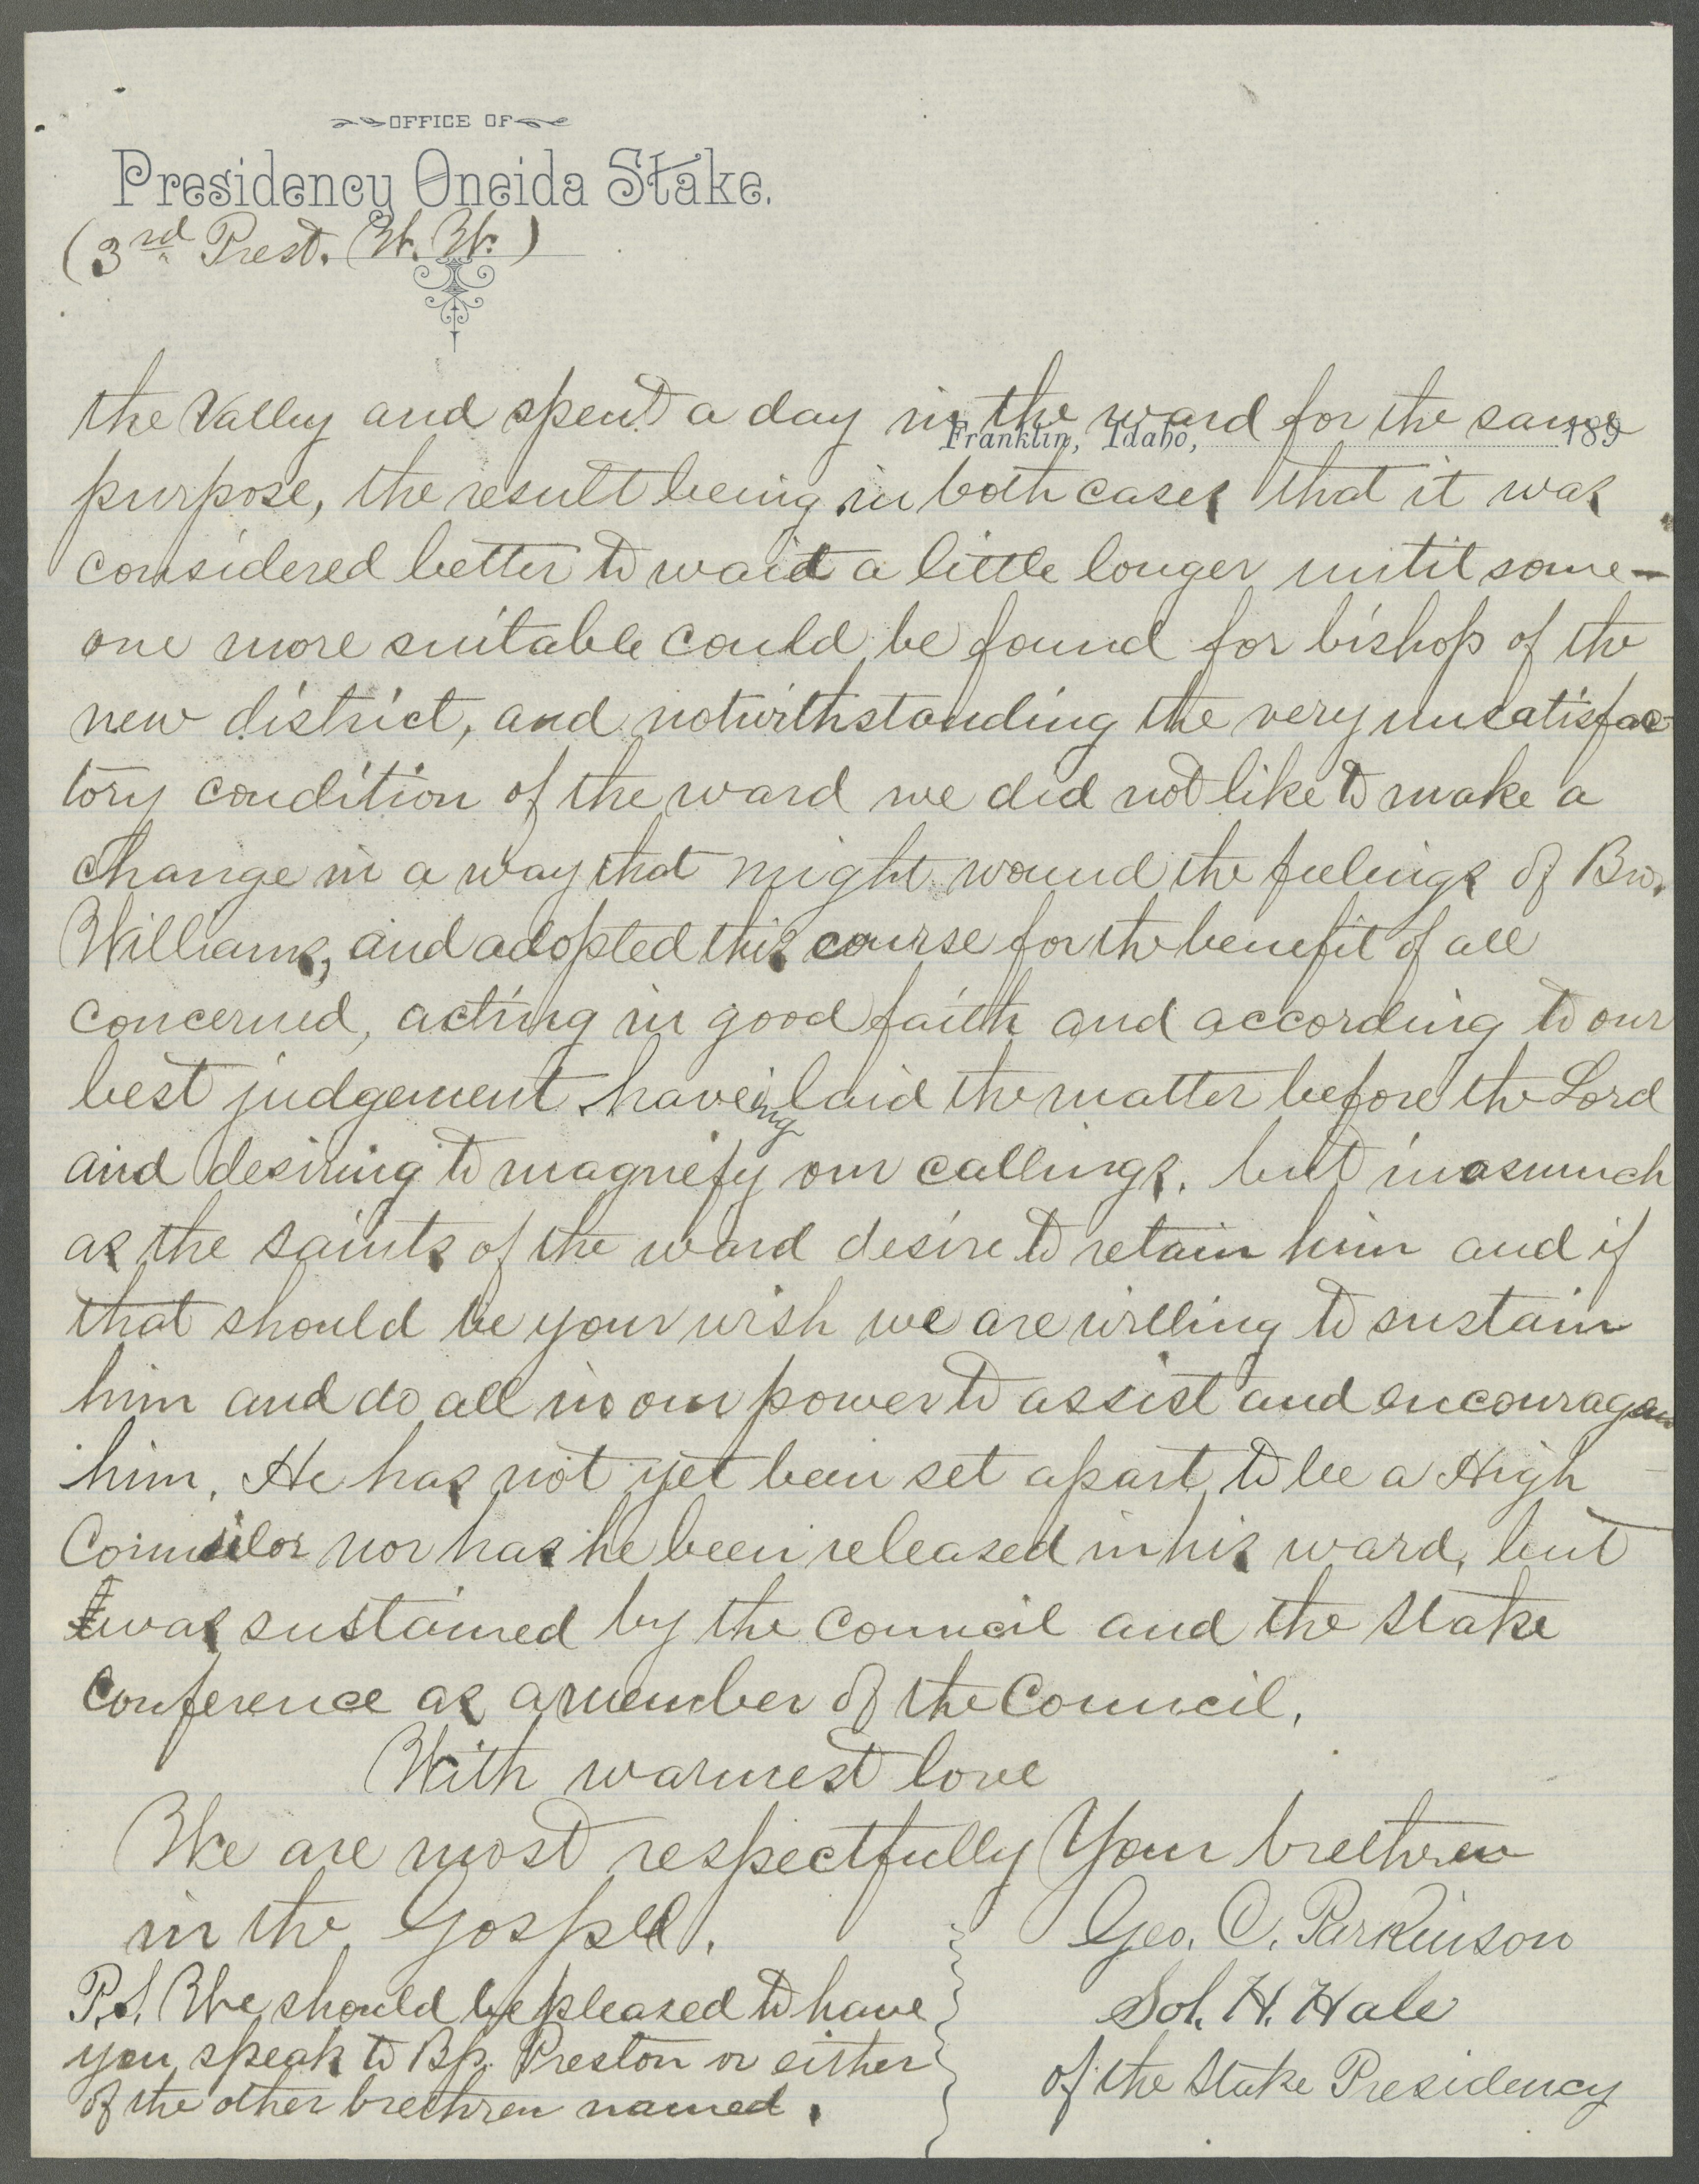 OFFICE OF
Presidency Oneida Stake.
(3rd Prest. W. W.)
Franklin, Idaho, 189
the Valley and spent a day in the ward for the same
purpose, the result being in both cases that it was
considered better to wait a little longer until some-
one more suitable could be found for bishop of the
new district, and notwithstanding the very unsatisfac-
tory condition of the ward we did not like to make a
change in a way that might wound the feelings of Bro.
Williams, and adopted this course for the benefit of all
concerned, acting in good faith and according to our
best judgement haveing laid the matter before the Lord
and desiring to magnefy our callings. but inasmuch
as the saints of the ward desire to retain him and if
that should be your wish we are willing to sustain
him and do all in our power to assist and encourage
him. He has not yet been set apart to be a High
Counsilor nor has he been released in his ward, but
was sustained by the Council and the Stake
Conference as a member of the Council.
With warmest love
We are most respectfully Your brethren
in the Gospel.
Geo. C. Parkinson
Sol. H. Hale
of the Stake Presidency
P.S. We should be pleased to have
you speak to Bp. Preston or either
of the other brethren named.